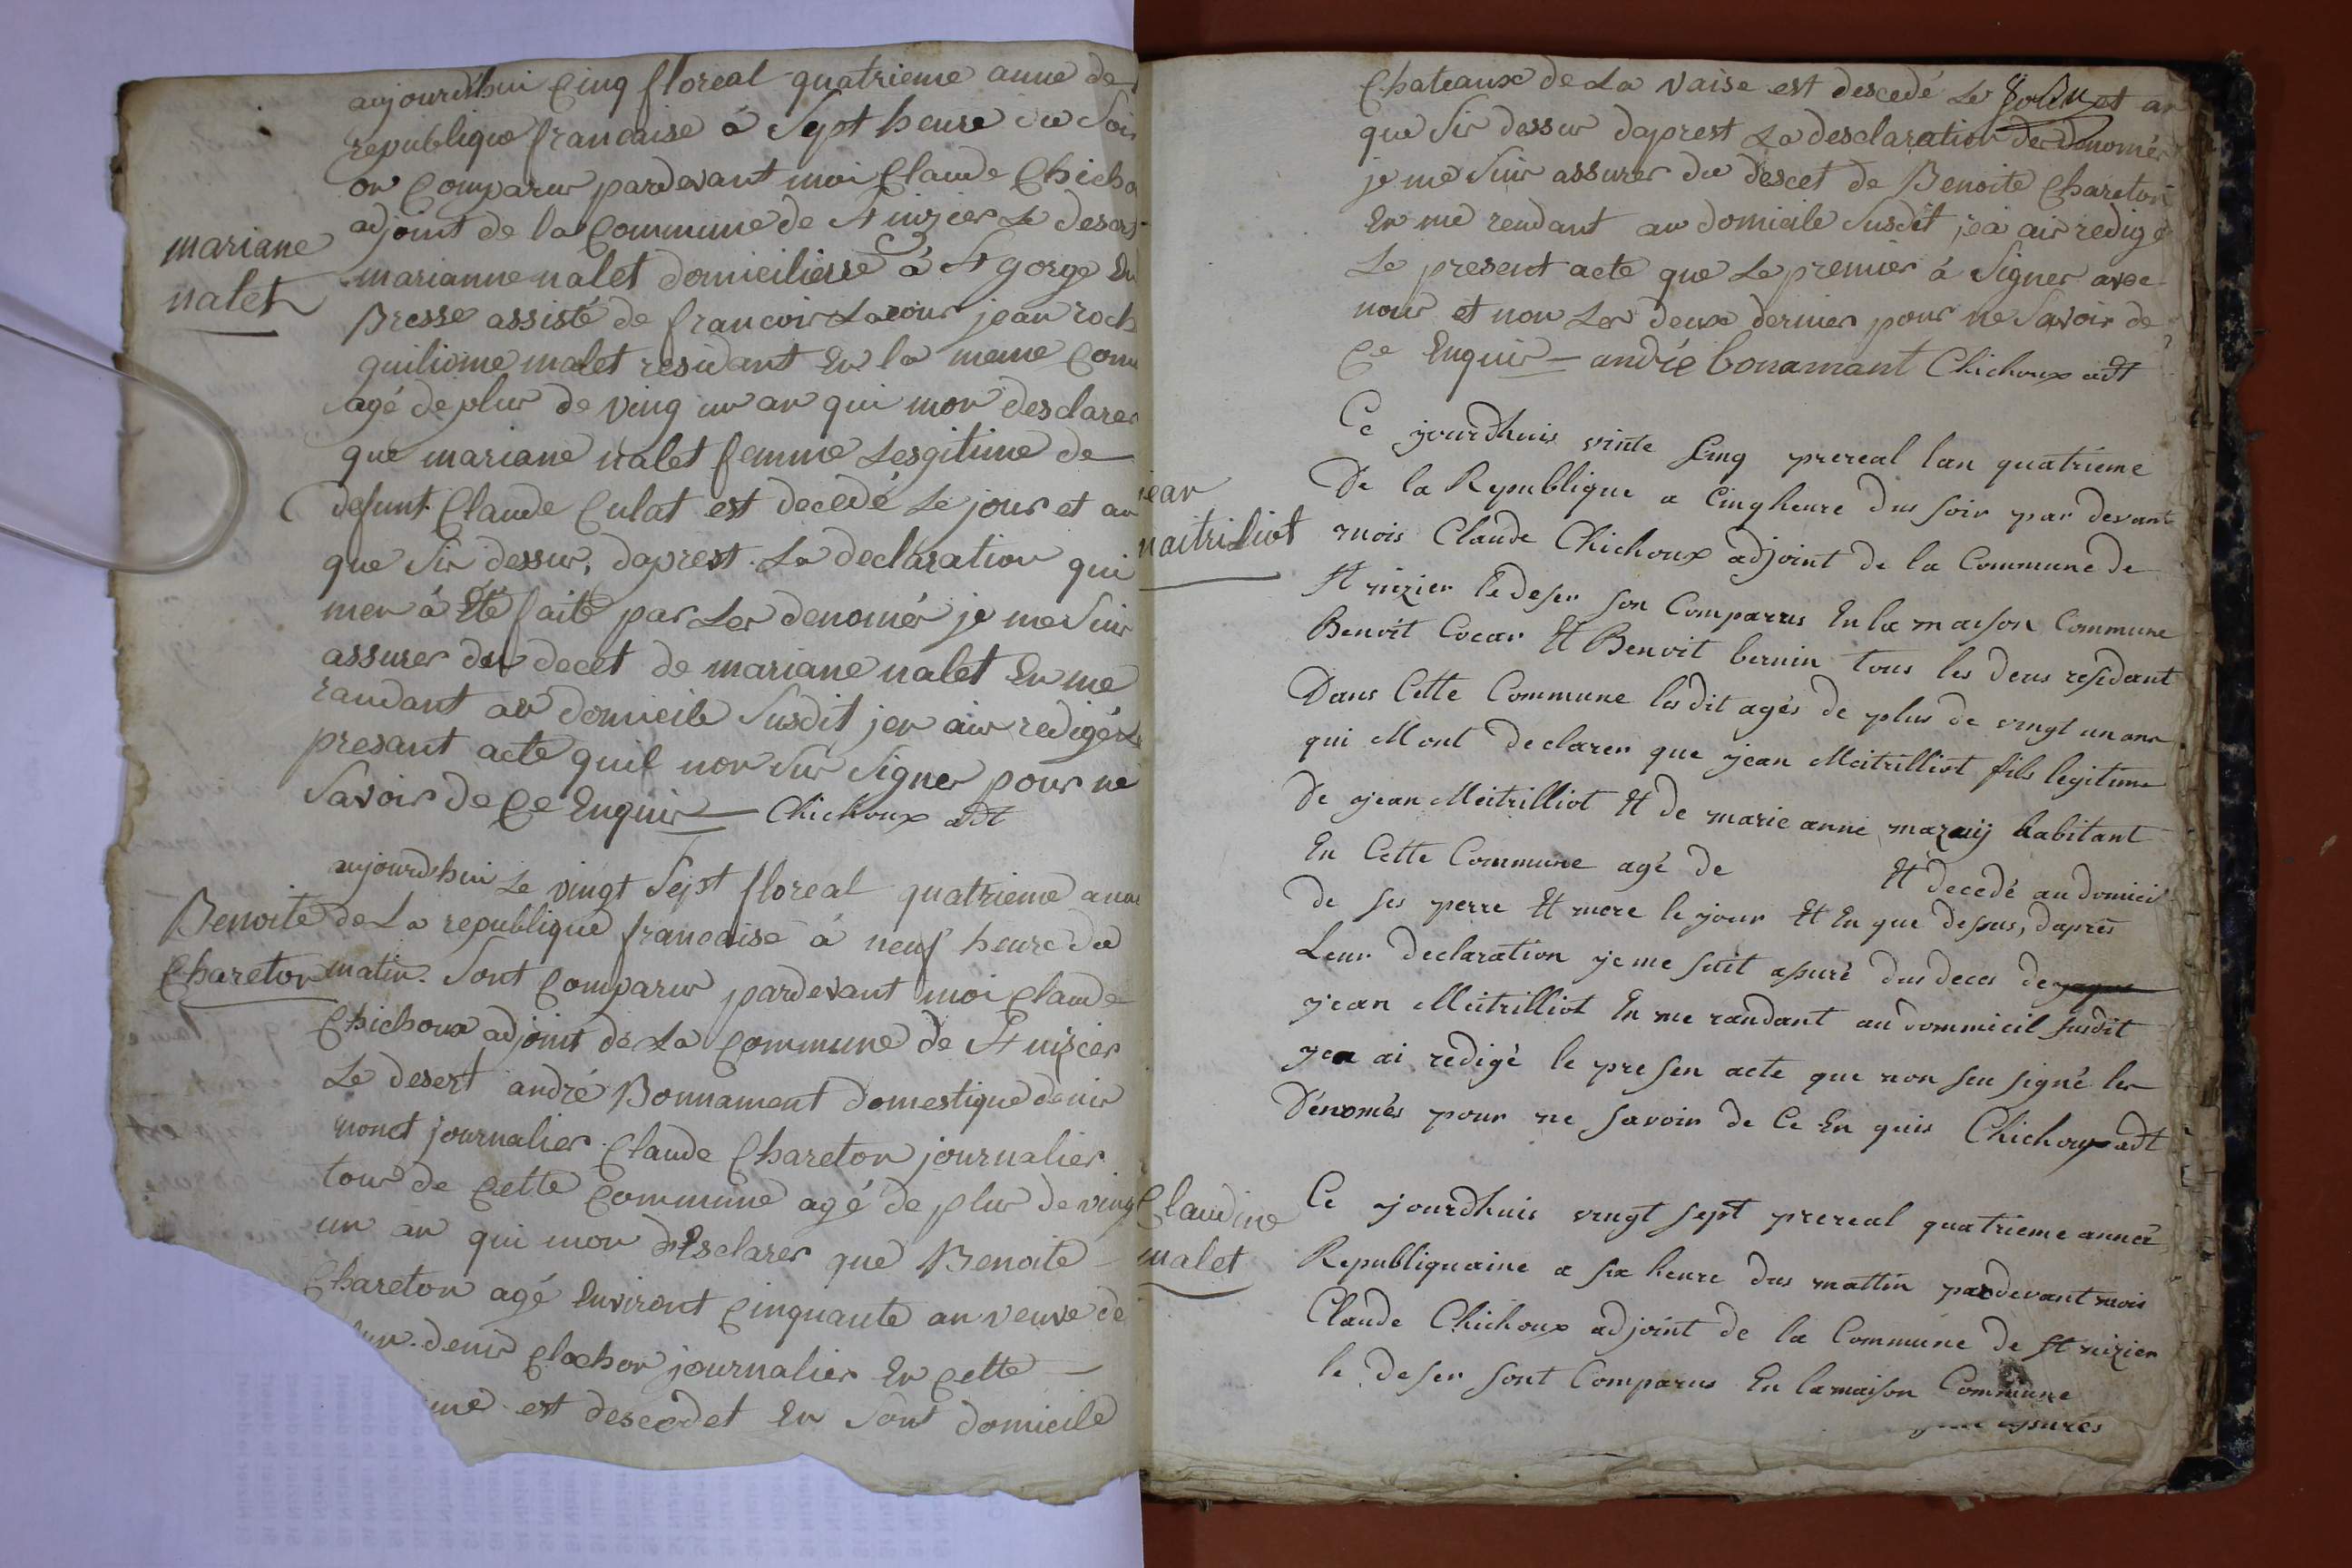 aujourd'hui Cinq floreal quatrieme anne de
republique francaise à Sept heure du Soir
on Comparus pardevant moi Claude Chicho
adjoint de la Commune de St nizier Le desert
mariane
nalet
marianne nalet domicilierre à St gorge En
Bresse assisté de francois Lacour jean roch
guiliome malet residant En la meme Com
agé de plus de ving un an qui mon desclarer
que mariane nalet femme Lesgitime de
defunt Claude Culat est decedé Le jour et an
que Sis dessus, daprest La declaration qui
men à Eté faite par Les denomés je me Suis
assurer du decet de mariane nalet En me
randant au domicile Susdit jen ais redigés Le
presant acte quil non Sus Signer pour ne
Savoir de Ce Enquis Chichoux adt
aujourdhui Le vingt Sept floreal quatrieme anne
Benoite
Chareton
de La republique francaise à neuf heure du
matin Sont Comparus pardevant moi Claude
Chichoux adjoint de La Commune de St nizier
Le desert andré Bonnament domestique denis
nonet journalier Claude Chareton journalier
tous de Cette Commune agé de plus de vingt
un an qui mon desclarer que Benoite
Chareton agé Environt Cinquante an veuve de
denis Clochon journalier En Cette
me est descedet En Sont domicile
Chateaux de La vaise est descedé Le jour et an
que Sis dessus daprest La desclaration des denomés
je me Suis assurer du descet de Benoite Chareton
En me rendant au domicile Susdit jea ais redigé
Le present acte que Le premier à Signer avec
nous et non Les deux dernier pour ne Savoir de
Ce Enquis andrée bonamant Chichoux adt
Ce jourdhuis vinte Cinq prereal lan quatrieme
jean
maitriliot
De la Republique a Cinq heure dus soir par devant
mois Claude Chichoux adjoint de la Commune de
St nizier le deser son Comparus En la maison Commune
Benoit Cocar Et Benoit bernin tous les deus residant
Dans Cette Commune lesdit agés de plus de vingt un ans
qui Mont declarer que jean Meitrilliot fils legitime
De jean Meitrilliot Et de marie anne mazuij habitant
En Cette Commune agé de Et decedé au domicil
de ses perre Et mere le jour Et En que desus, daprès
Leur declaration je me suit asuré dus deces de jaque
jean Meitrilliot En me randant au dommicil susdit
jen ai redigé le presen acte que non seu signé les
Dénomés pour ne savoir de Ce En quis Chichoux adt
Claudine
malet
Ce jourdhuis vingt sept prereal quatrieme année
Republiquaine a six heure dus mattin pardevant mois
Claude Chichoux adjoint de la Commune de St nizier
le deser sont Comparus En la maison Commune
asurés